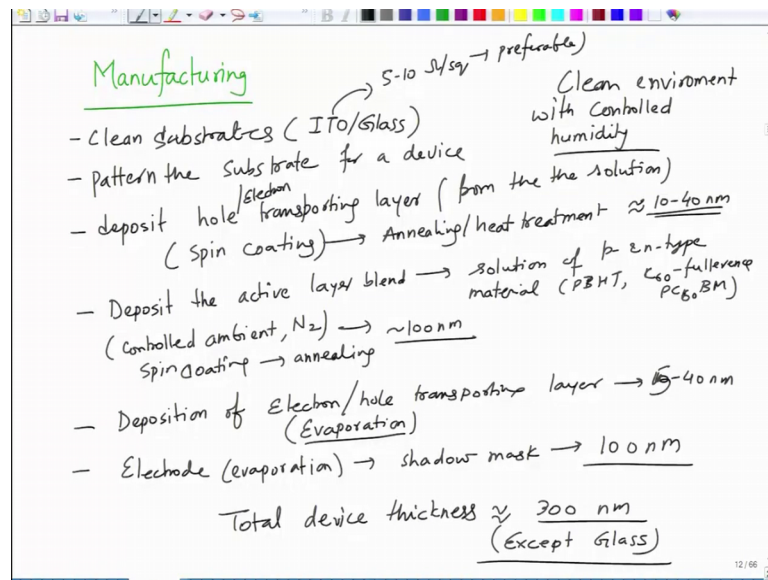 5-10 Ω/sq → preferable)
Manufacturing
Clean enviroment
with Controlled
humidity
- Clean Substrates ( ITO/Glass)
- Pattern the Substrate for a device
- deposit hole/Electron transporting layer ( from the the solution)
( Spin coating) → Annealing/heat treatment ≈ 10-40 nm
- Deposit the active layer blend → solution of p & n-type
material (PBHT, C60-fullerence
PC60BM)
(Controlled ambient, N2) → ~100nm
Spin coating → annealing
- Deposition of Electron/hole transporting layer → 5-40 nm
(Evaporation)
- Electrode (evaporation) → shadow mask → 100nm
Total device thickness ≈ 300 nm
(Except Glass)
12 / 66